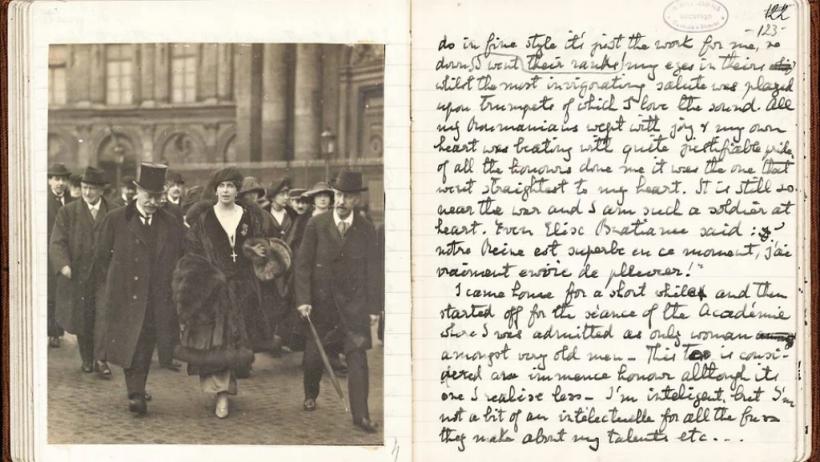 -123-
do in fine style it's just the work for me, so
down I went their ranks my eyes in theirs
whilst the most invigorating salute was played
upon trumpets of which I love the sound. All
my Roumanians wept with joy & my own
heart was beating with quite justifiable pride,
of all the honours done me it was the one that
went straightest to my heart. It is still so
near the war and I am such a soldier at
heart. Even Elise Bratianu said : "
notre Reine est superbe en ce moment, j'ai
vraiment envie de pleurer!"
I came home for a short while and then
started off for the séance of the Académie
where I was admitted as only woman
amongst very old men - This too is consi-
dered an immence honour although its
one I realise less - I'm inteligent, but I'm
not a bit of an intelectuelle for all the fuss
they make about my talents etc....